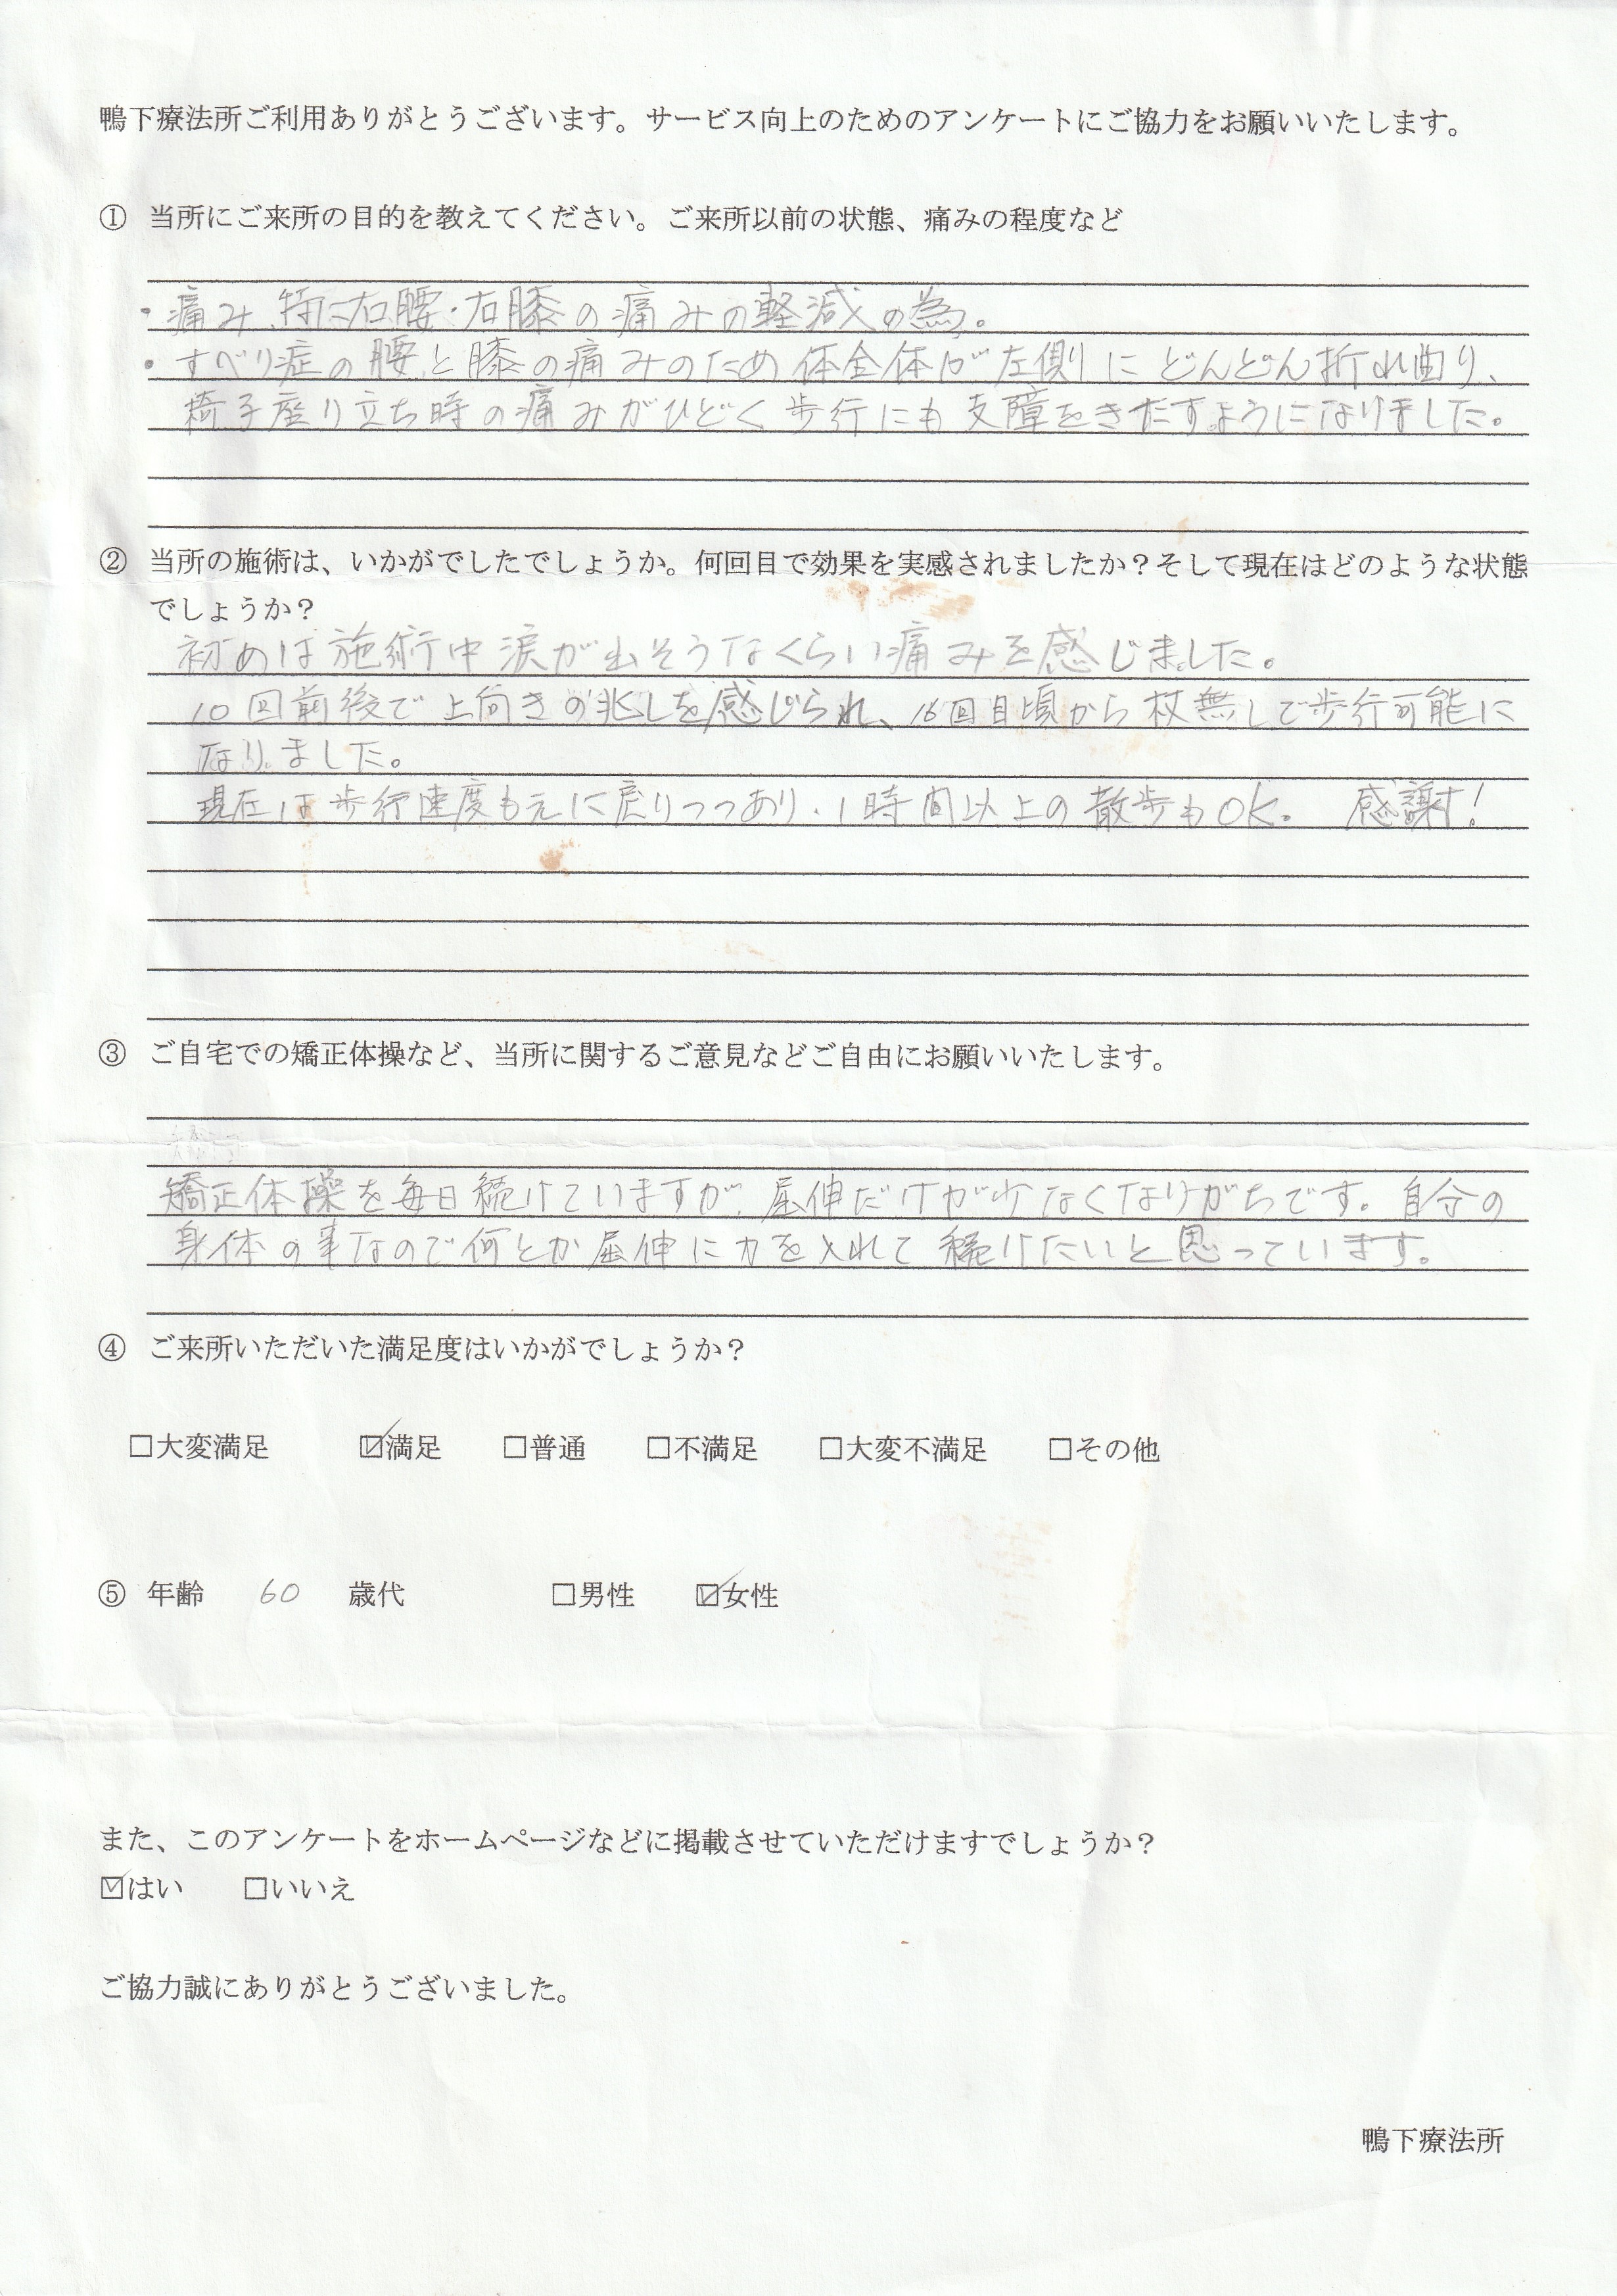 鴨下療法所ご利用ありがとうございます。サービス向上のためのアンケートにご協力をお願いいたします。
① 当所にご来所の目的を教えてください。ご来所以前の状態、痛みの程度など
・痛み、特に右腰・右膝の痛みの軽減の為。
・すべり症の腰と膝の痛みのため体全体が左側にどんどん折れ曲り、
椅子座り立ち時の痛みがひどく歩行にも支障をきたすようになりました。
② 当所の施術は、いかがでしたでしょうか。何回目で効果を実感されましたか?そして現在はどのような状態
でしょうか?
初めは施術中涙が出そうなくらい痛みを感じました。
10回前後で上向きの兆しを感じられ、16回目頃から杖無しで歩行可能に
なりました。
現在は歩行速度も元に戻りつつあり、1時間以上の散歩もOK。 感謝!
③ ご自宅での矯正体操など、当所に関するご意見などご自由にお願いいたします。
矯正体操を毎日続けていますが、屈伸だけが少なくなりがちです。自分の
身体の事なので何とか屈伸に力を入れて続けたいと思っています。
④ ご来所いただいた満足度はいかがでしょうか?
□大変満足 ☑満足 □普通 □不満足 □大変不満足 □その他
⑤ 年齢 60 歳代 □男性 ☑女性
また、このアンケートをホームページなどに掲載させていただけますでしょうか?
☑はい □いいえ
ご協力誠にありがとうございました。
鴨下療法所